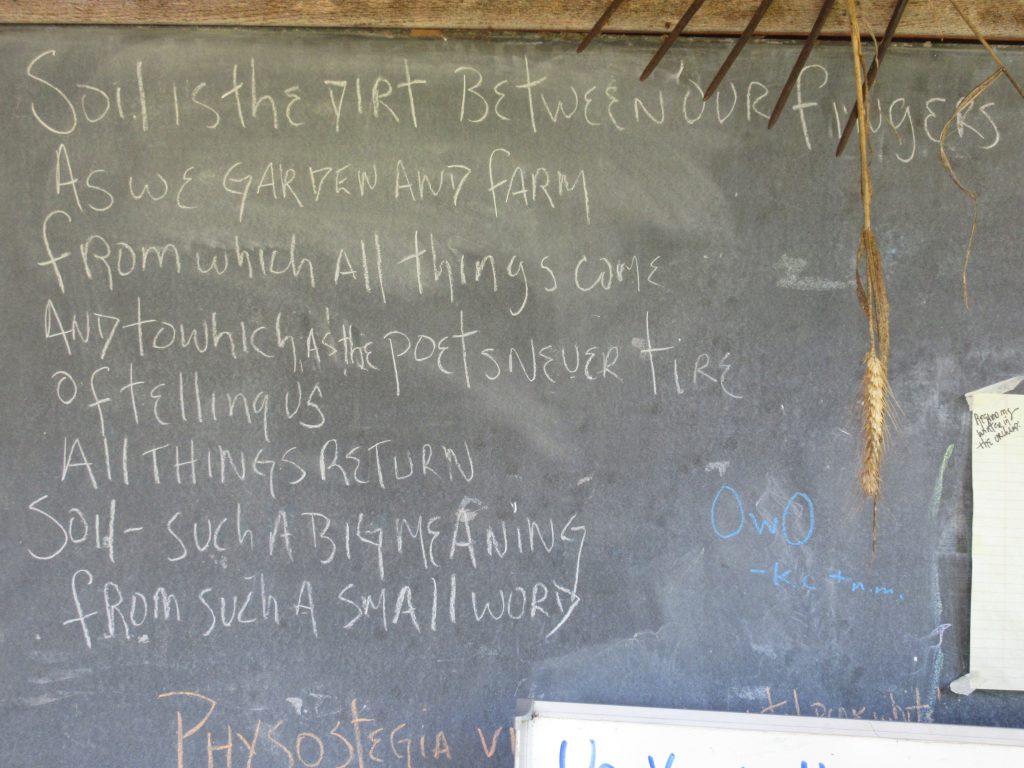 Soil is the DIRT BETWEEN OUR fingERS
As we GARDEN AND fARM
fROM which All things come
AND to which, As the POETS NEVER tiRE
Of telling us
All THINGS RETURN
Soil - SUCH A BIG MEANING
fROM SUCH A SMALL WORD
OwO
- K.C + n.m.
in
the
PHYSOSTEGIA VI